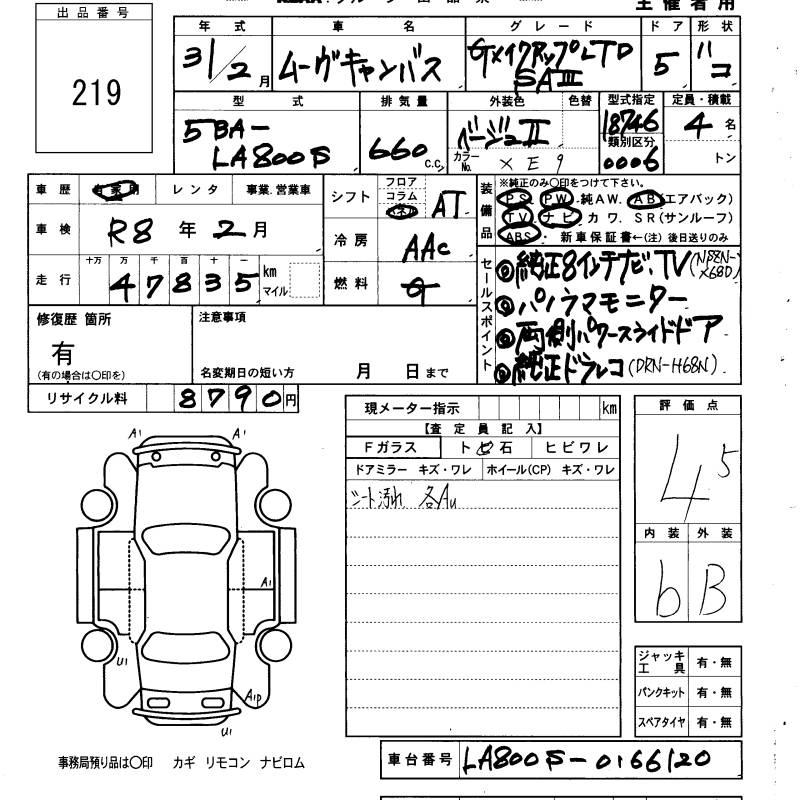 主催者用
出品番号
219
年式 車名 グレード ドア 形状
31/2月 ムーヴキャンバス GメイクアップLTD SAⅢ 5 バコ
型式 排気量 外装色 色替 型式指定 定員・積載
5BA-LA800S 660 c.c. ベージュⅡ 18746 4名
カラーNo. XE9 類別区分 0006 トン
車歴 自家用 レンタ 事業.営業車
シフト フロア コラム パネル AT
車検 R8年2月
冷房 AAC
走行 十万 万 千 百 十 一
47835 km マイル
燃料 G
装備品 ※純正のみ〇印をつけて下さい。
PS PW.純AW. AB(エアバック)
TV ナビ カワ. SR(サンルーフ)
ABS・ 新車保証書←(注) 後日送りのみ
セールスポイント
◎純正8インチナビ.TV(N82N-X68D)
◎パノラマモニター
◎両側パワースライドドア
◎純正ドラレコ(DRN-H68N)
修復歴 箇所 注意事項
有
(有の場合は〇印を) 名変期日の短い方 月 日まで
リサイクル料 8790円
現メーター指示 km
【査定員記入】
Fガラス トビ石 ヒビワレ
ドアミラー キズ・ワレ ホイール(CP) キズ・ワレ
シート汚れ 各AU
評価点
4.5
内装 外装
b B
A1 A1
A1
U1
A1P
U1
ジャッキ工具 有・無
パンクキット 有・無
スペアタイヤ 有・無
事務局預り品は〇印 カギ リモコン ナビロム
車台番号 LA800S-0166120